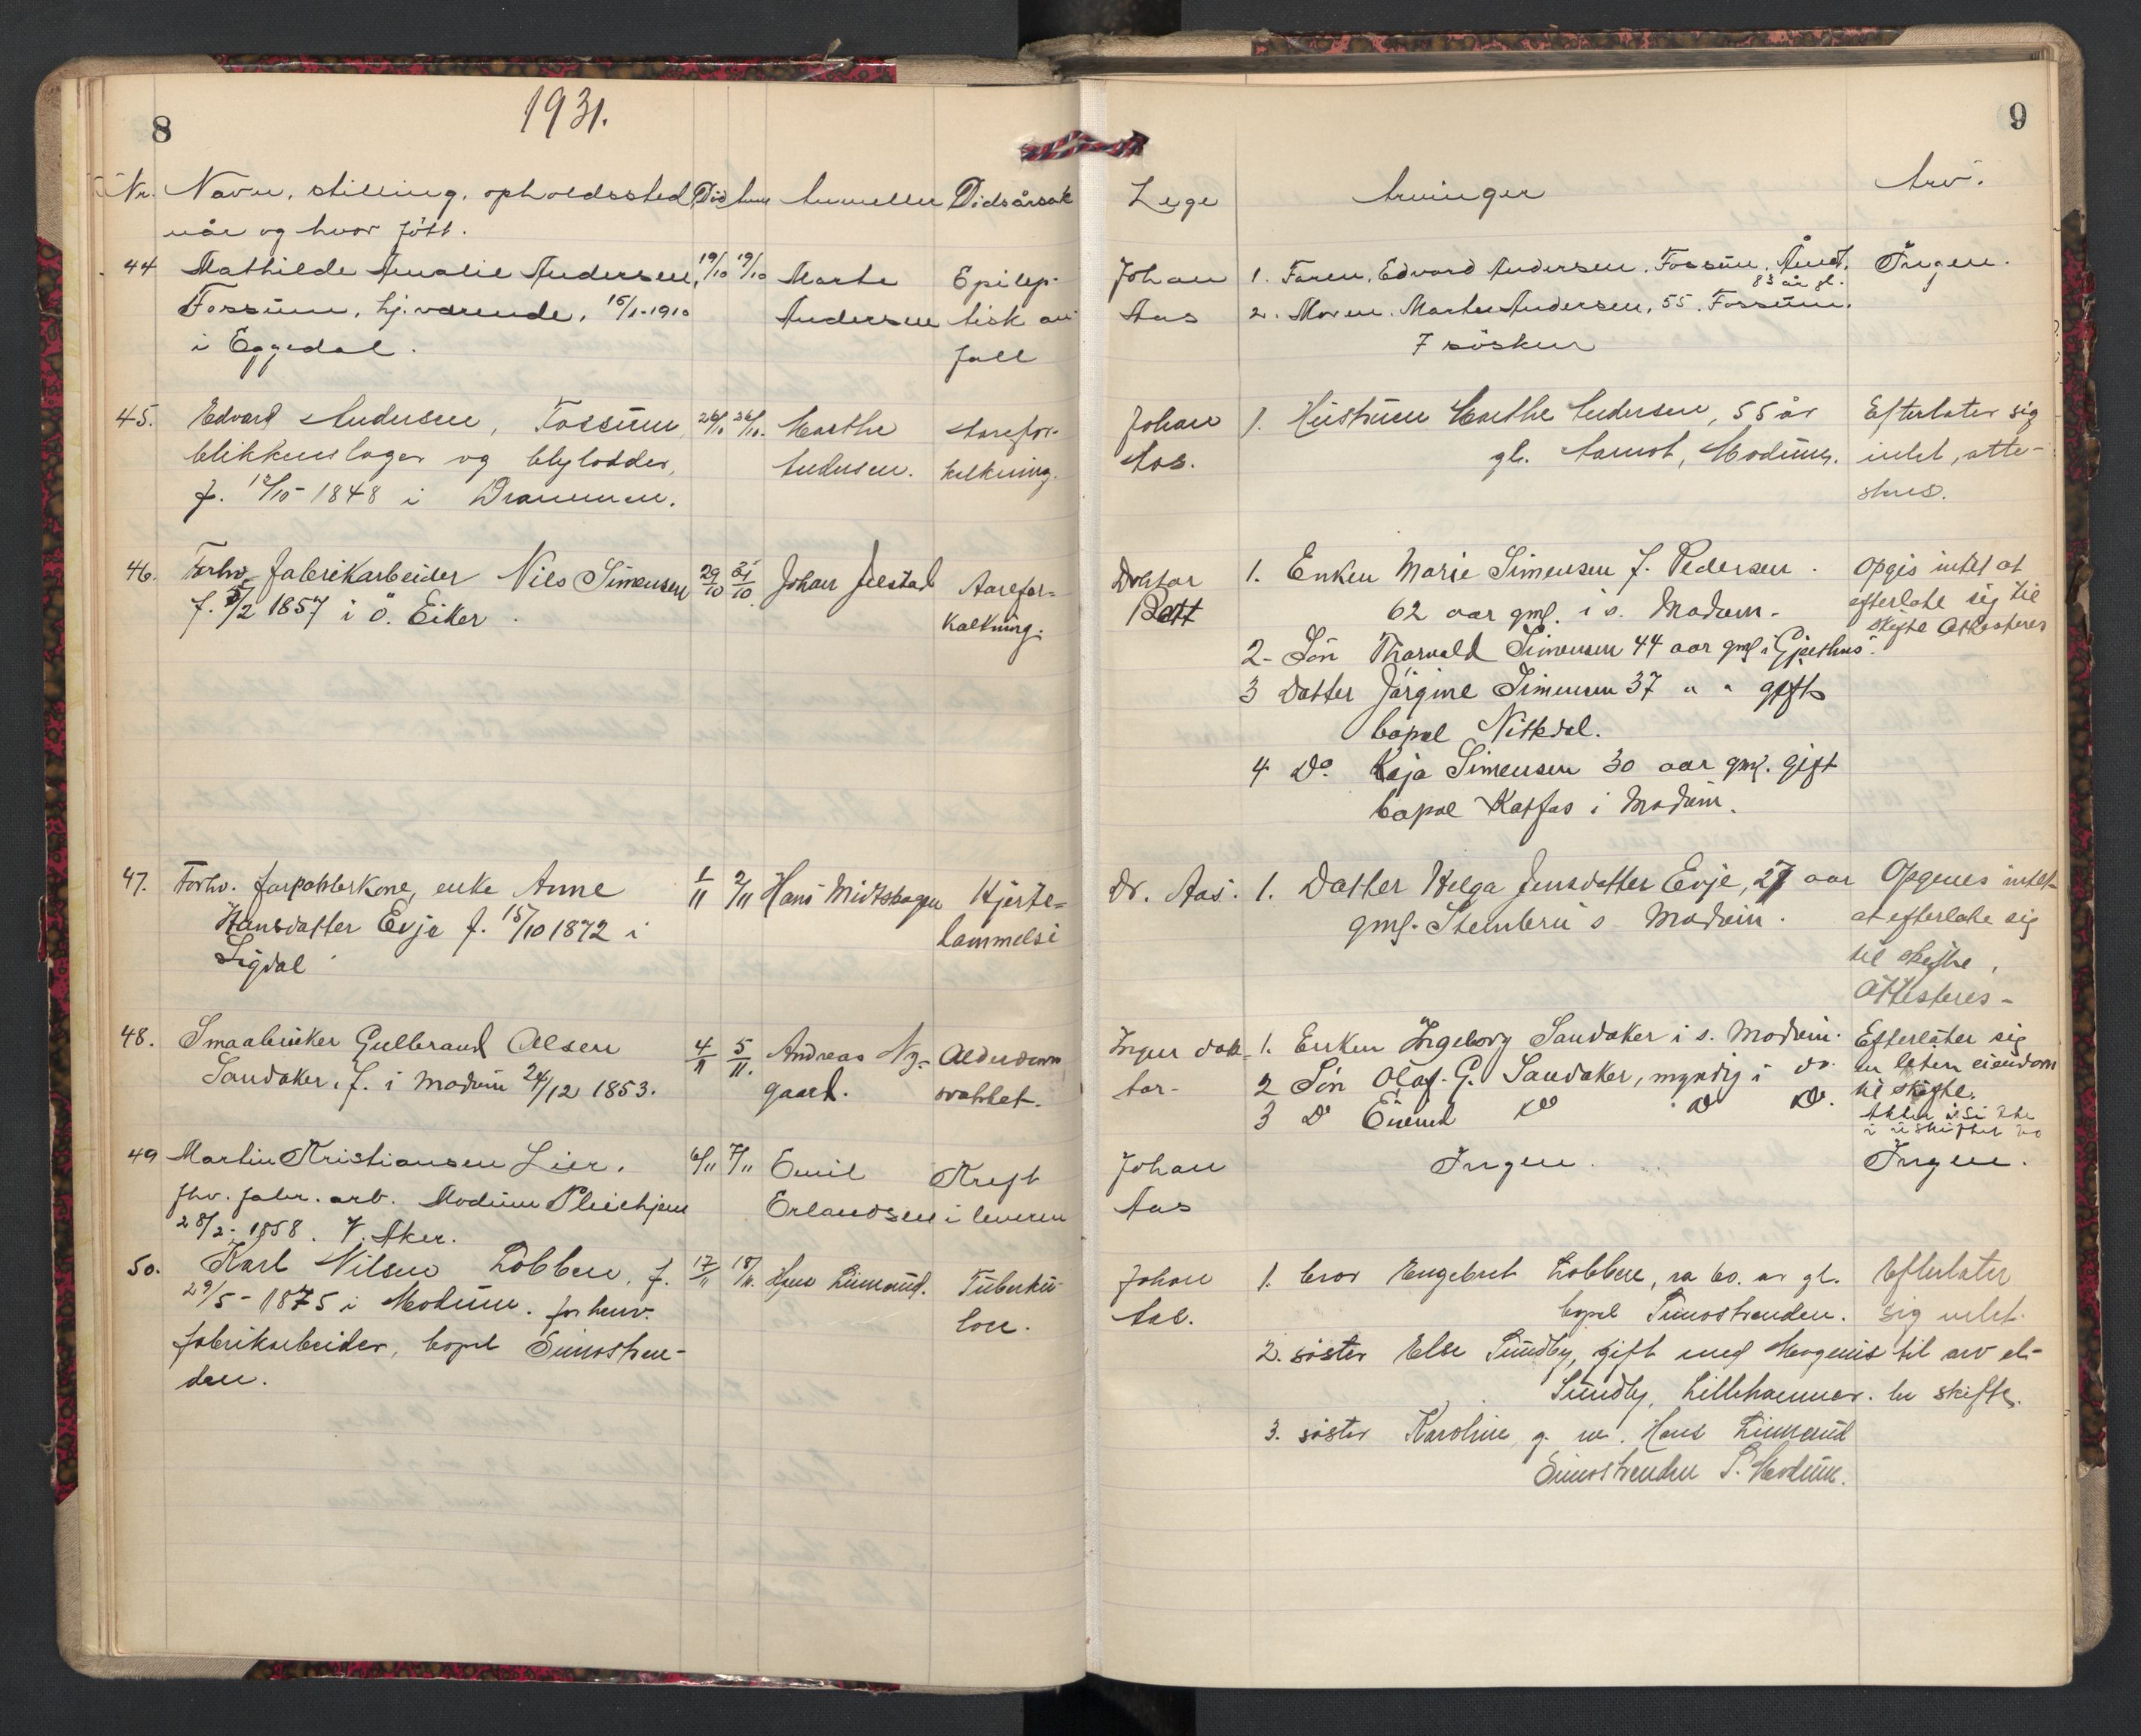 8
1931.
Nr. Navn, stilling, opholdssted, Död Anm Anmelder Dödsårsak
når og hvor född.
44 Mathilde Amalie Andersen, 19/10 19/10 Marte Epilep-
Fossum, hj. værende, 15/1-1910 Andersen tisk an
i Eggedal. fall
45. Edvard Andersen, Fossum 26/10 26/10. Marthe Aarefor-
blikkenslager og blylodder, Andersen. kalkning.
f. 12/10-1848 i Drammen.
46. Forhv. fabrikarbeider Nils Simensen 29/10 31/10 Johan Julstad Aarefor-
f. 5/2 1857 i Ö. Eiker. kalkning.
47. Forhv. forpakterkone, enke Anne 1/11 2/11 Hans Midtskogen Hjerte-
Hansdatter Evje f. 15/10 1872 i lammelse
Sigdal
48. Smaabruker Gulbrand Olsen 4/11 5/11. Andreas Ny- Alderdom
Sandaker. f. i Modum 24/12 1853. gaard. svakhet.
49 Martin Kristiansen Lier. 6/11 7/11 Emil Kreft
fhv. fabr. arb. Modum Pleiehjem Erlandsen i leveren
28/2-1858. V. Aker.
50. Karl Nilsen Lobben, f. 17/11 18/11. Hans Limarud. Tuberku-
29/5-1875 i Modum. forhenv. lose.
fabrikarbeider, bopel Simostran-
den.
9
Lege Arvinger Arv.
Johan 1. Faren, Edvard Andersen. Fossum, Åmot. Ingen.
83 år gl.
Aas 2. Moren. Marthe Andersen, 55. Fossum.
7 søsken
Johan 1. Hustruen Marthe Andersen, 55 år Efterlater sig
Aas. gl. Aamot, Modum. intet, atte-
steres.
Doktor 1. Enken Marie Simensen f. Pedersen. Opgis intet at
Bott 62 aar gml. i s. Modum. efterlate sig til
skifte Attesteres
2- Sön Thorvald Simensen 44 aar gml i Gjethus.
3 Datter Jörgine Simensen 37 " " gift
bopel Nitedal.
4 Do. Kaja Simensen 30 aar gml. gift
bopæl Katfos i Modum.
Dr. Aas. 1. Datter Helga Jensdatter Evje, 27 aar Opgives intet
gml. Stenbru s. Modum. at efterlate sig
til skifte,
Attesteres-
Ingen dok- 1. Enken Ingeborg Sandaker i s. Modum. Efterlater sig
tor- 2 Sön Olaf. G. Sandaker, myndig i do. en liten eiendom
til skifte.
3 Do Do Do Do.
Johan Ingen. Ingen.
Aas
Johan 1. bror Engebret Lobben, ca 60. år gl. Efterlater
Aas. bopel Simostranden. sig intet
2. søster Else Sundby, gift med Magnus til arv el-
Sundby, Lillehammer. ler skifte.
3. søster Karoline g. m. Hans Limarud
Simostranden S. Modum.